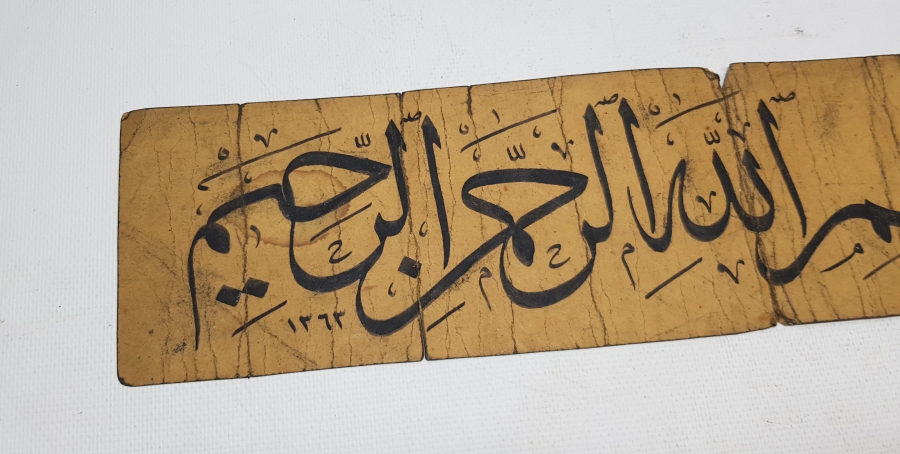 م الله الرحمن الرحيم
١٣٦٣